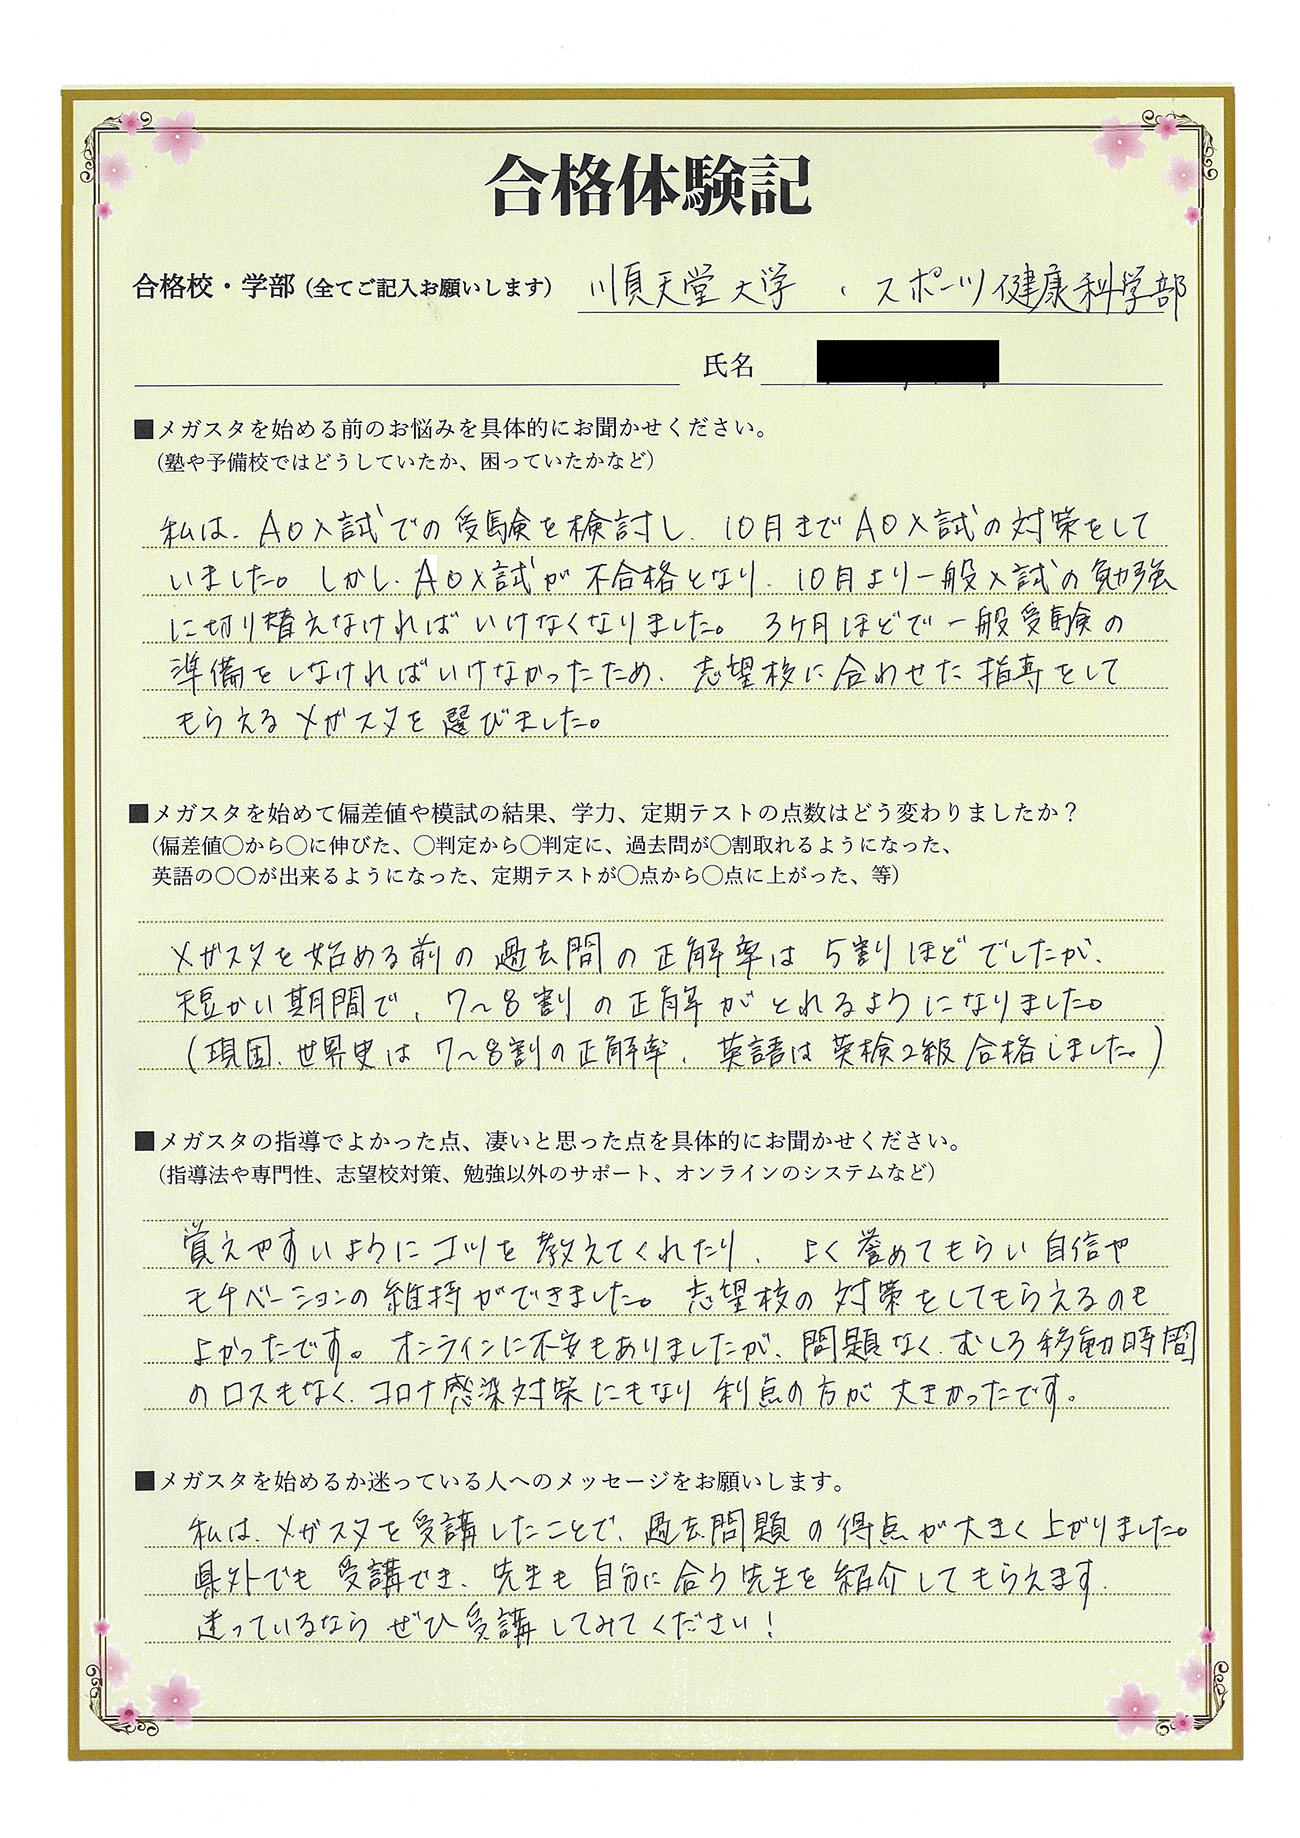 合格体験記
合格校・学部（全てご記入お願いします） 順天堂大学 、スポーツ健康科学部
氏名
■メガスタを始める前のお悩みを具体的にお聞かせください。
（塾や予備校ではどうしていたか、困っていたかなど）
私は、AO入試での受験を検討し、10月までAO入試の対策をして
いました。しかし、AO入試が不合格となり、10月より一般入試の勉強
に切り替えなければいけなくなりました。3ヶ月ほどで一般受験の
準備をしなければいけなかったため、志望校に合わせた指導をして
もらえるメガスタを選びました。
■メガスタを始めて偏差値や模試の結果、学力、定期テストの点数はどう変わりましたか？
（偏差値〇から〇に伸びた、〇判定から〇判定に、過去問が〇割取れるようになった、
英語の〇〇が出来るようになった、定期テストが〇点から〇点に上がった、等）
メガスタを始める前の過去問の正解率は5割ほどでしたが、
短かい期間で、7～8割の正解がとれるようになりました。
（現国、世界史は7～8割の正解率、英語は英検2級合格しました。）
■メガスタの指導でよかった点、凄いと思った点を具体的にお聞かせください。
（指導法や専門性、志望校対策、勉強以外のサポート、オンラインのシステムなど）
覚えやすいようにコツを教えてくれたり、よく誉めてもらい自信や
モチベーションの維持ができました。志望校の対策をしてもらえるのも
よかったです。オンラインに不安もありましたが、問題なく、むしろ移動時間
のロスもなく、コロナ感染対策にもなり利点の方が大きかったです。
■メガスタを始めるか迷っている人へのメッセージをお願いします。
私は、メガスタを受講したことで、過去問題の得点が大きく上がりました。
県外でも受講でき、先生も自分に合う先生を紹介してもらえます。
迷っているならぜひ受講してみてください！